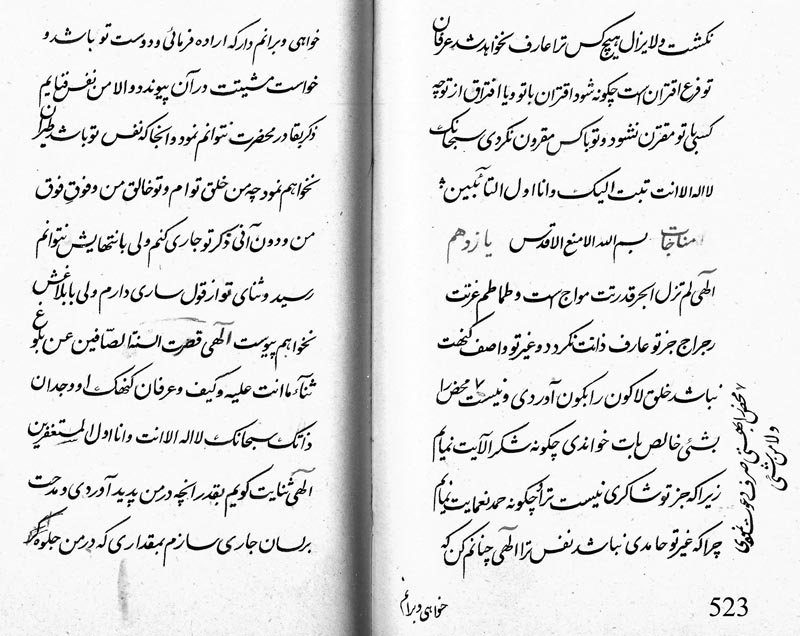 نکشت و لا یزال هیچ کس ترا عارف نخواهد شد عرفان
تو فرع اقتران است چگونه شود اقتران با تو و یا افتراق از توجه
کسی با تو مقترن نشود و تو با کس مقرون نگردی سبحانک
لا اله الا انت تبت الیک و انا اول التائبین
مناجات یازدهم بسم الله الامنع الاقدس
الهی لم تزل ابحر قدرتت مواج است و طماطم عزتت
رجراج جز تو عارف ذاتت نگردد و غیر تو واصف کنهت
نباشد خلق لا کون را بکون آوردی و نیست محض را
بشئ خالص بات خواندی چگونه شکر الآیت نمایم
زیرا که جز تو شاکری نیست ترا و چگونه حمد نعمایت نمایم
چرا که غیر تو حامدی نباشد نفس ترا الهی چنانم کن که
محض را بهستی صرف دعوت نمودی
و لا من شئ
خواهی و برانم
523
خواهی و برانم دار که اراده فرمائی و دوست تو باشد و
خواست مشیتت در آن پیوندد و الا من بنفس فنایم
ذکر بقا در محضرت نتوانم نمود و آنجا که نفس تو باشد طیران
نخواهم نمود چه من خلق توام و تو خالق من و فوق فوق
من و دون آنی ذکر تو جاری کنم ولی بانتهایش نتوانم
رسید و ثنای تو از قول ساری دارم ولی بابلاغش
نخواهم پیوست الهی قصرت السنة الصافین عن بلوغ
ثناء ما انت علیه و کیف و عرفان کنهک او وجدان
ذاتک سبحانک لا اله الا انت و انا اول المستغفرین
الهی ثنایت کویم بقدر آنچه در من پدید آوردی و مدحت
بر لسان جاری سازم بمقداری که در من جلوه